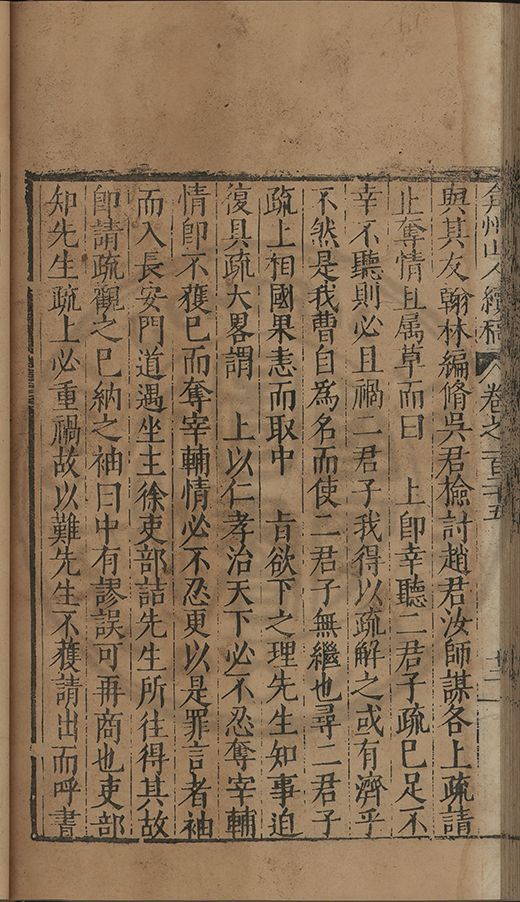 弇州山人續稿 卷之一百二十五
與其友翰林編脩吳君檢討趙君汝師謀各上疏請
止奪情且属草而曰 上卽幸聽二君子疏已足不
幸不聽則必且禍二君子我得以疏解之或有濟乎
不然是我曹自為名而使二君子無繼也尋二君子
疏上相國果恚而取中 旨欲下之理先生知事迫
復具疏大畧謂 上以仁孝治天下必不忍奪宰輔
情卽不獲已而奪宰輔情必不忍更以是罪言者袖
而入長安門道遇坐主徐吏部詰先生所往得其故
卽請疏觀之已納之袖曰中有謬誤可再商也吏部
知先生疏上必重禍故以難先生不獲請出而呼書